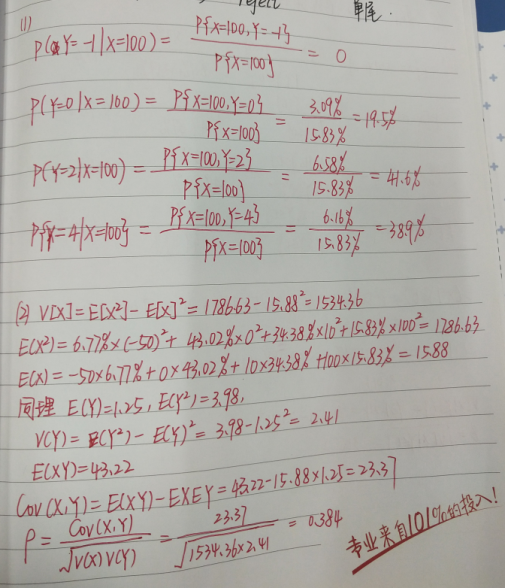 reject 单尾.
(1)
P(Y=-1|X=100) = P{X=100,Y=-1} / P{X=100} = 0
P(Y=0|X=100) = P{X=100,Y=0} / P{X=100} = 3.09% / 15.83% = 19.5%
P(Y=2|X=100) = P{X=100,Y=2} / P{X=100} = 6.58% / 15.83% = 41.6%
P{Y=4|X=100} = P{X=100,Y=4} / P{X=100} = 6.16% / 15.83% = 38.9%
(2) V[X]=E[X²]-E[X]²=1786.63-15.88²=1534.36
E(X²)=6.77%×(-50)²+43.02%×0²+34.38%×10²+15.83%×100²=1786.63
E(X)=-50×6.77%+0×43.02%+10×34.38%+100×15.83%=15.88
同理 E(Y)=1.25, E(Y²)=3.98,
V(Y)=E(Y²)-E(Y)²=3.98-1.25²=2.41
E(XY)=43.22
Cov(X,Y)=E(XY)-EXEY=43.22-15.88×1.25=23.37
ρ = Cov(X,Y) / √V(X)V(Y) = 23.37 / √1534.36×2.41 = 0.384
专业来自101%的投入!